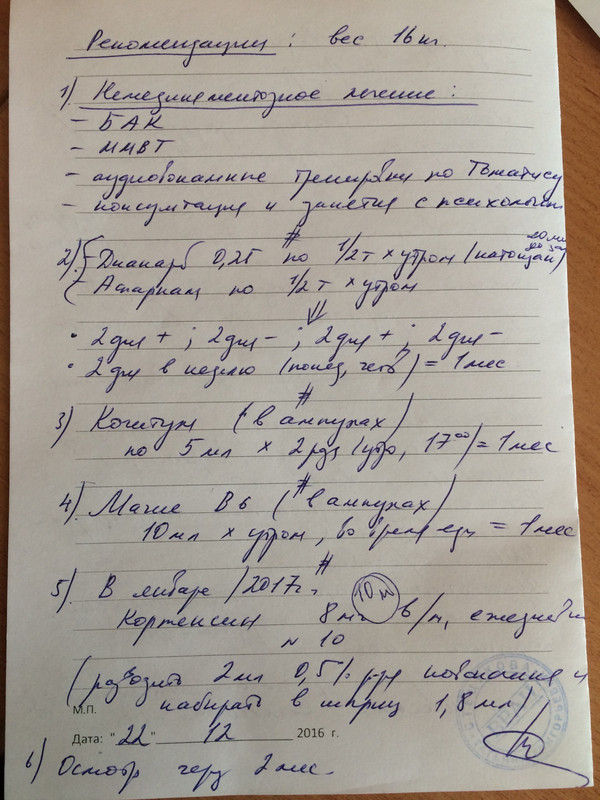 Рекомендации: вес 16 кг.
1) Немедикаментозное лечение:
- БАК
- ММВТ
- аудиовокальные тренировки по Томатису
- консультация и занятия с психологом
20 мин до
2) - Диакарб 0,25 по 1/2 т × утром (натощак)
- Аспаркам по 1/2 т × утром
• 2 дня + ; 2 дня - ; 2 дня + ; 2 дня -
• 2 дня в неделю (понед, четв) = 1 мес
3) Когитум (в ампулах)
по 5 мл × 2 р/д (утро, 17⁰⁰) = 1 мес
4) Магне В6 (в ампулах)
10 мл × утром, во время еды = 1 мес
5) В январе /2017г.
Кортексин 8 мг 10 м в/м, ежедневно
N 10
(разводить 2 мл 0,5% р-ра новокаина и
набирать в шприц 1,8 мл)
М.П.
Дата: "22" 12 2016 г.
6) Осмотр через 2 мес.